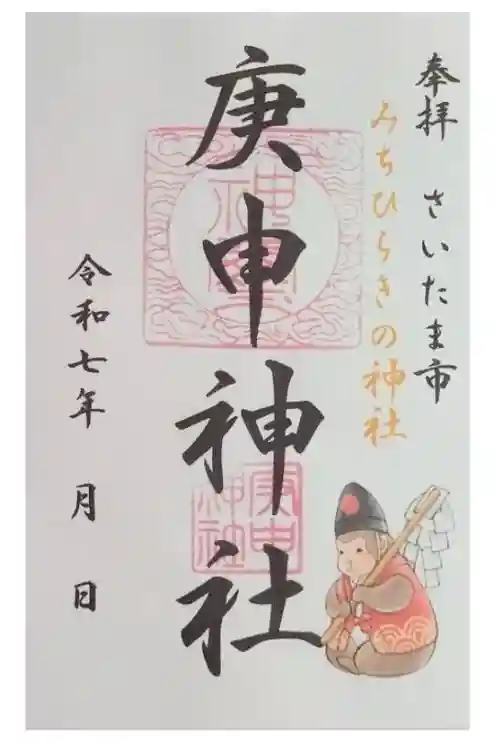 奉拝 さいたま市
みちひらきの神社
庚申神社
令和七年 月 日
庚申神社